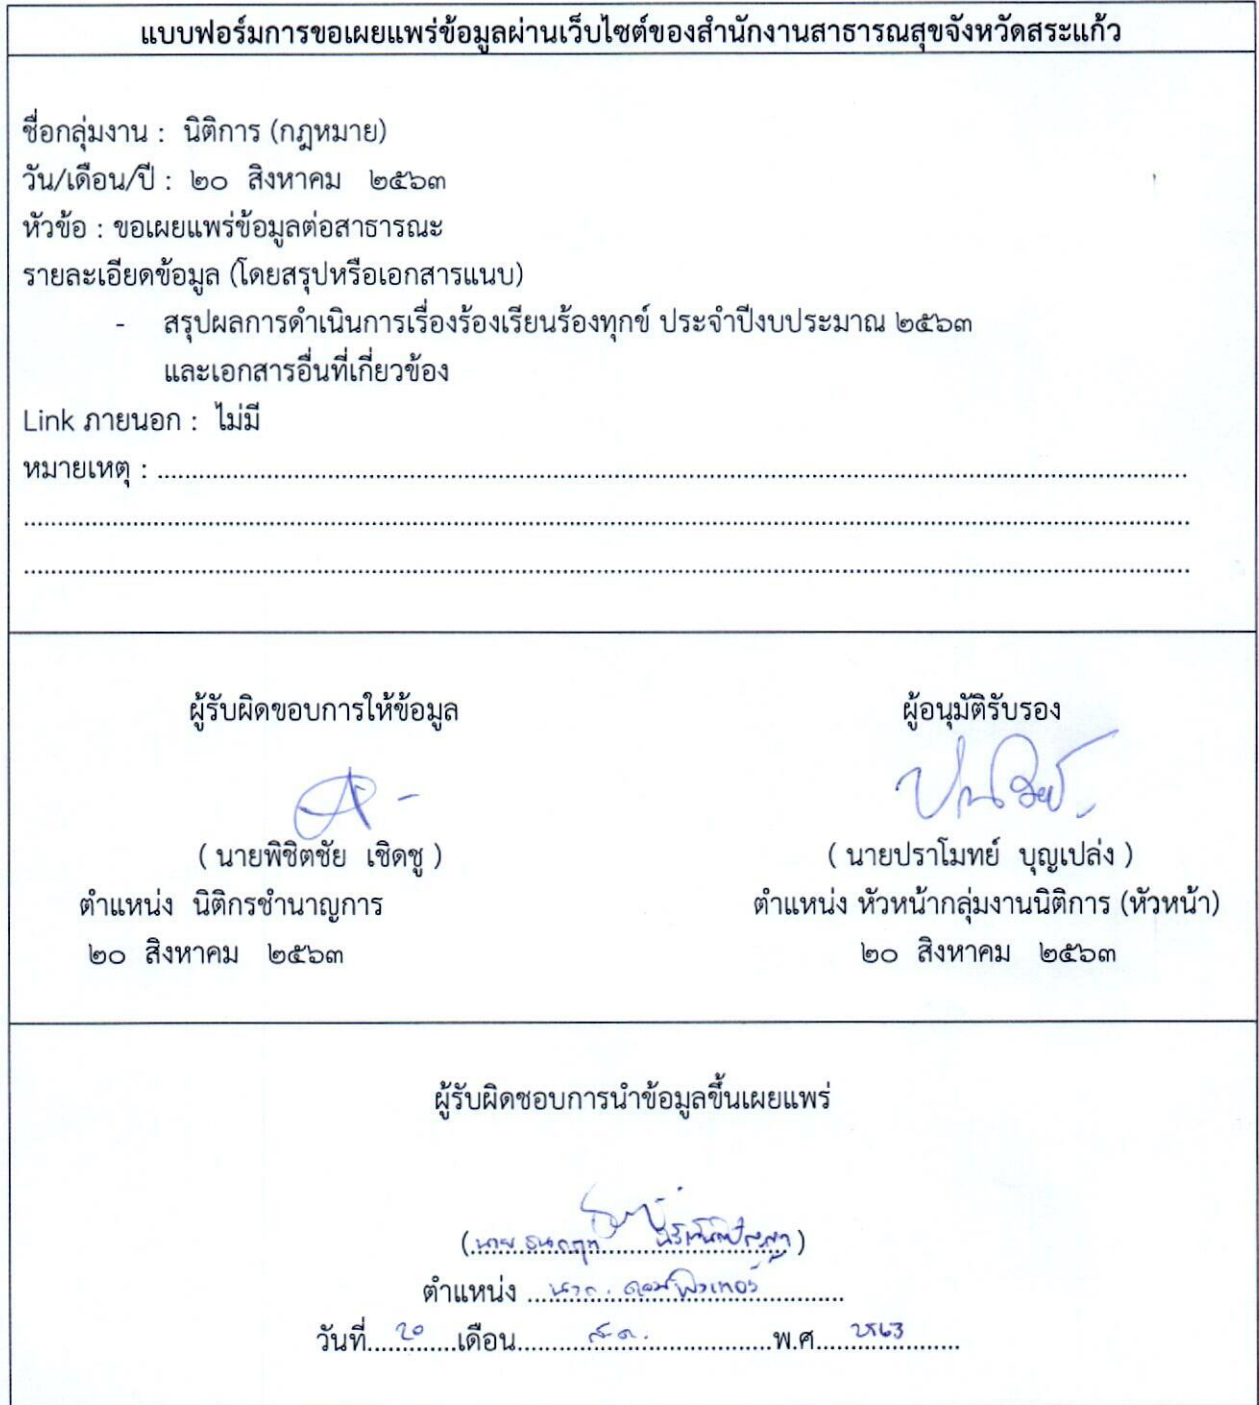 แบบฟอร์มการขอเผยแพร่ข้อมูลผ่านเว็บไซต์ของสำนักงานสาธารณสุขจังหวัดสระแก้ว
ชื่อกลุ่มงาน : นิติการ (กฎหมาย)
วัน/เดือน/ปี : ๒๐ สิงหาคม ๒๕๖๓
หัวข้อ : ขอเผยแพร่ข้อมูลต่อสาธารณะ
รายละเอียดข้อมูล (โดยสรุปหรือเอกสารแนบ)
- สรุปผลการดำเนินการเรื่องร้องเรียนร้องทุกข์ ประจำปีงบประมาณ ๒๕๖๓
และเอกสารอื่นที่เกี่ยวข้อง
Link ภายนอก : ไม่มี
หมายเหตุ :
ผู้รับผิดชอบการให้ข้อมูล
( นายพิชิตชัย เชิดชู )
ตำแหน่ง นิติกรชำนาญการ
๒๐ สิงหาคม ๒๕๖๓
ผู้อนุมัติรับรอง
( นายปราโมทย์ บุญเปล่ง )
ตำแหน่ง หัวหน้ากลุ่มงานนิติการ (หัวหน้า)
๒๐ สิงหาคม ๒๕๖๓
ผู้รับผิดชอบการนำข้อมูลขึ้นเผยแพร่
(นาย ธนกฤท)
ตำแหน่ง นวก. คอมพิวเตอร์
วันที่ 20 เดือน ส.ค. พ.ศ. 2563